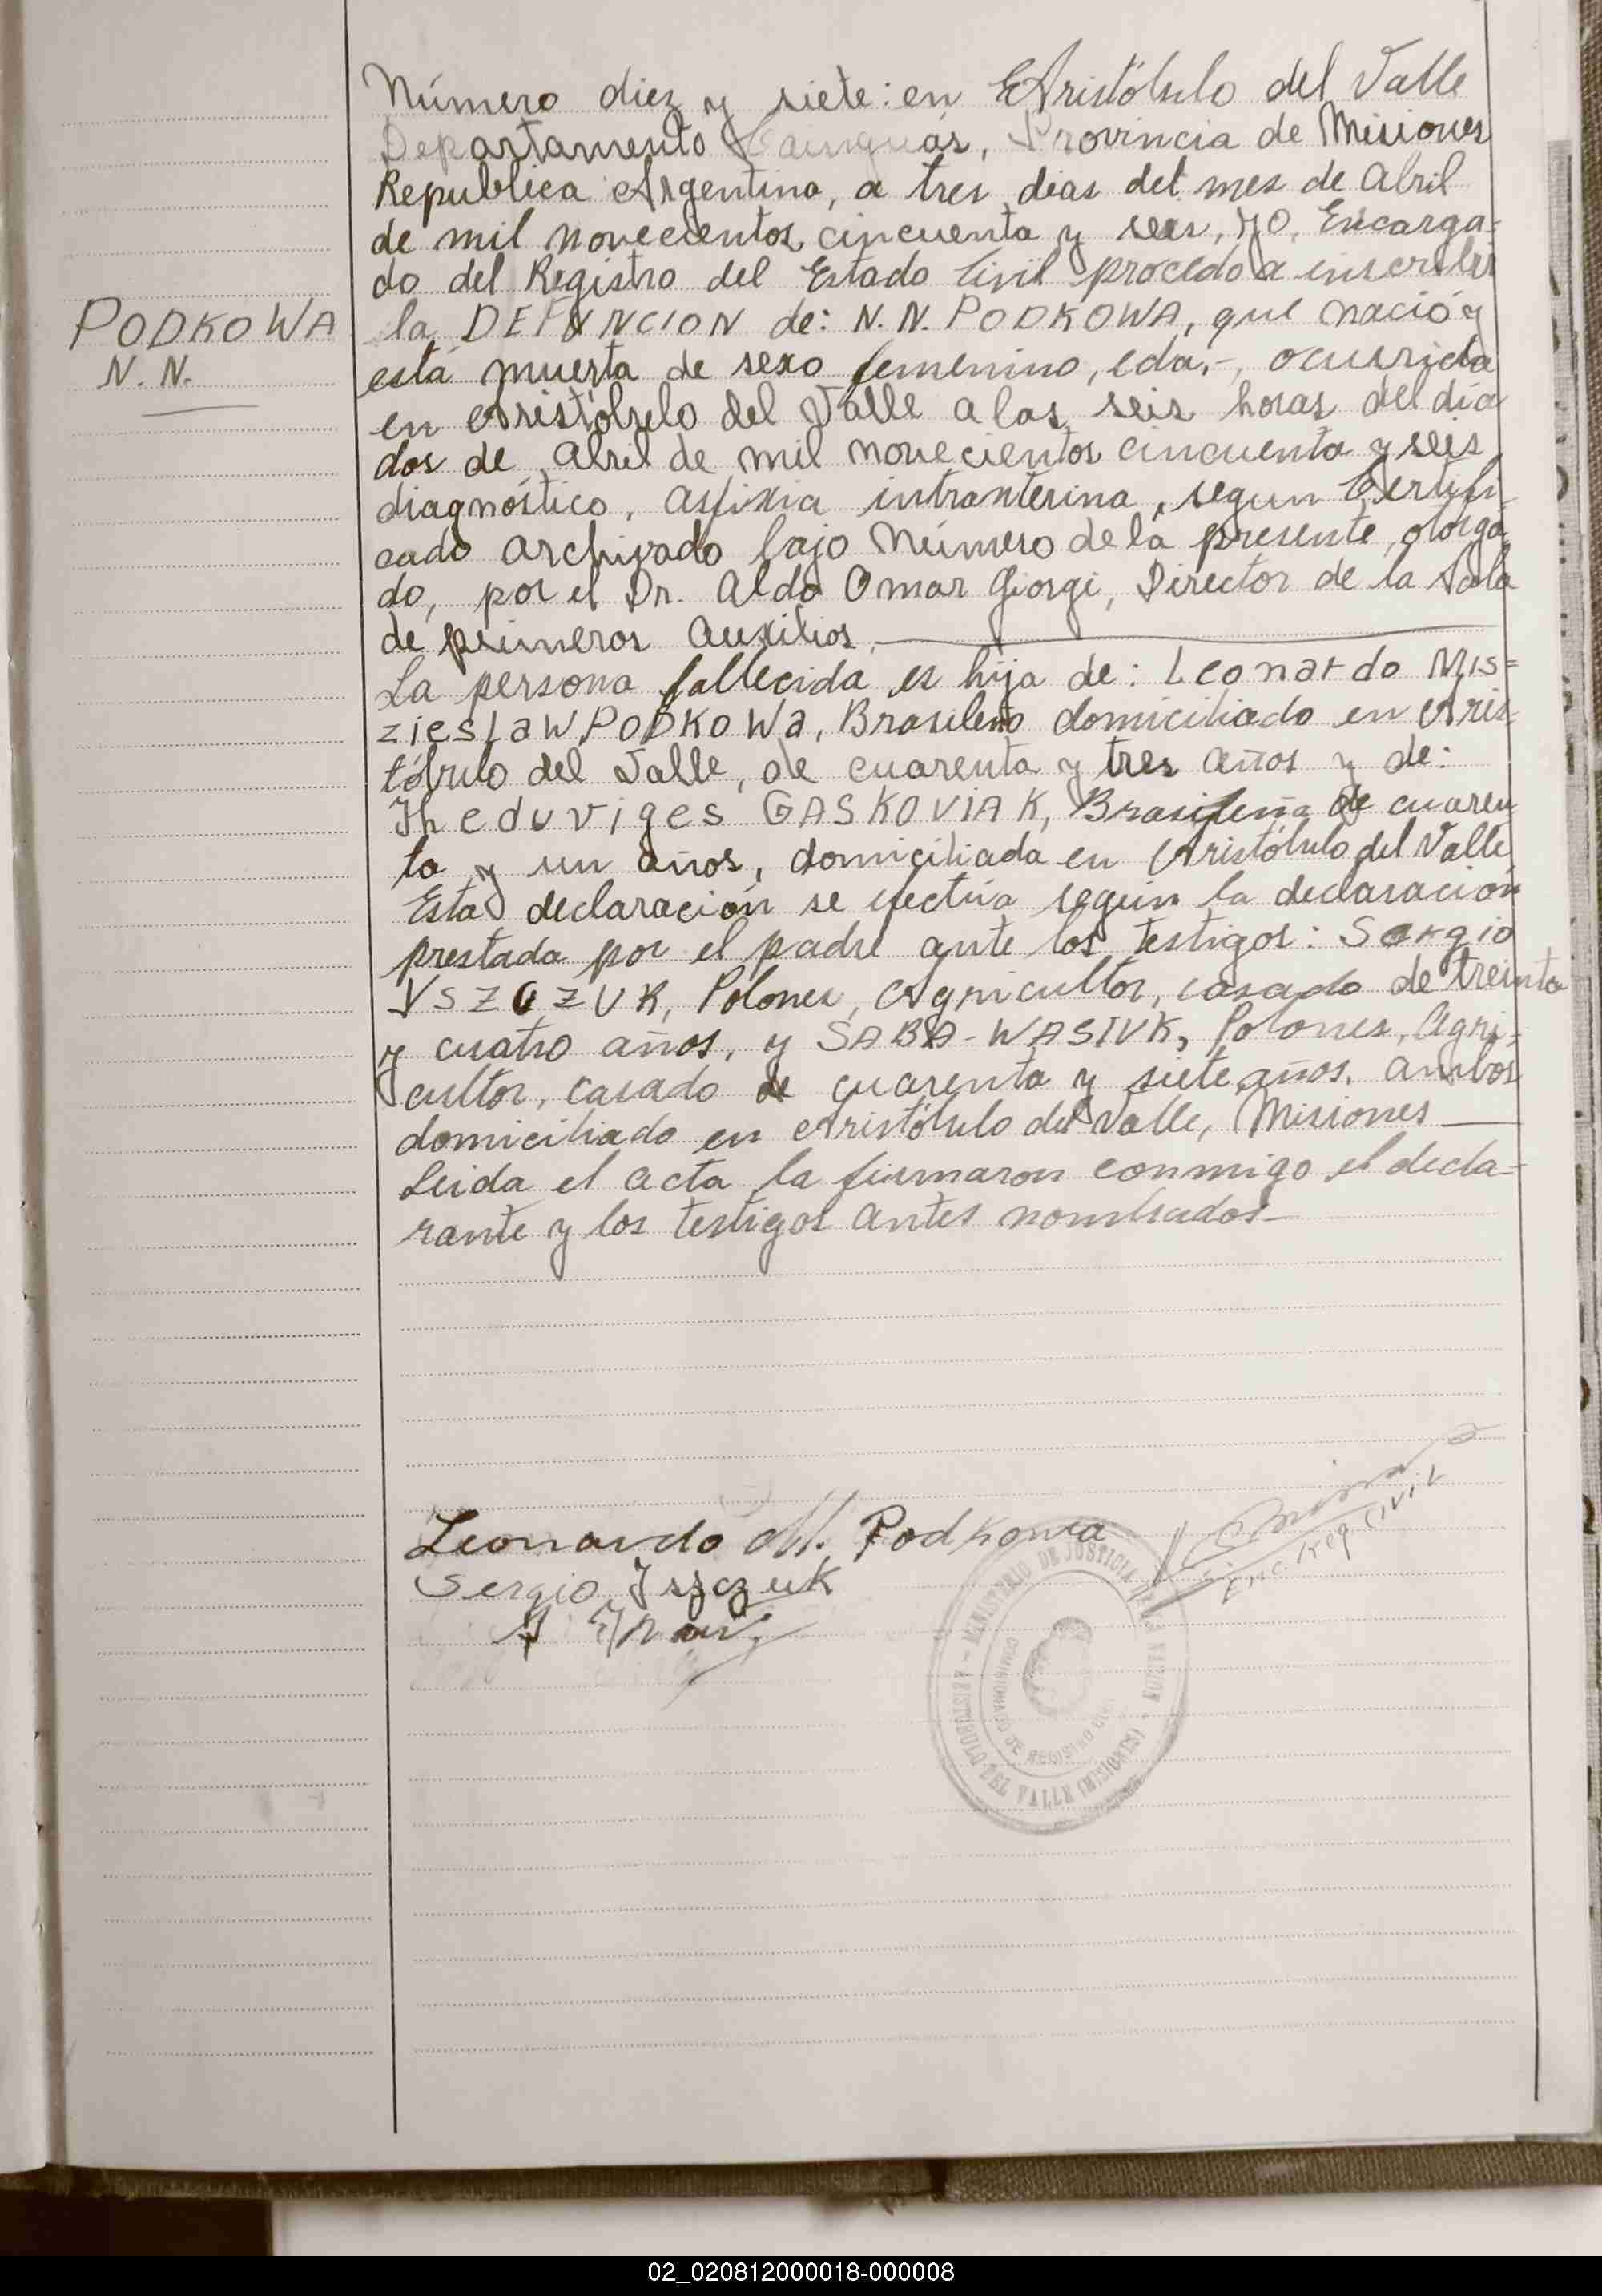 Número diez y siete: en Aristóbulo del Valle
Departamento Cainguás, Provincia de Misiones
Republica Argentina, a tres dias del mes de Abril
de mil novecientos cincuenta y seis, yo, Encarga-
do del Registro del Estado Civil procedo a inscribir
PODKOWA
N. N.
la DEFUNCION de: N. N. PODKOWA, que nació y
está muerta de sexo femenino, eda.-, ocurrida
en Aristóbulo del Valle a las seis horas del dia
dos de Abril de mil novecientos cincuenta y seis
diagnóstico, asfixia intrauterina, segun Certifi-
cado archivado bajo Número de la presente, otorga
do, por el Dr. Aldo Omar Giorgi, Director de la Sala
de primeros auxilios.
La persona fallecida es hija de: Leonardo Mis=
zieslaw PODKOWa, Brasileño domiciliado en Aris-
tóbulo del Valle, de cuarenta y tres años y de:
Theduviges GASKOVIAK, Brasileña de cuaren
ta y un años, domiciliada en Aristóbulo del Valle
Esta declaración se efectúa según la declaración
prestada por el padre ante los testigos: Sergio
YSZCZUK, Polones, Agricultor, casado de treinta
y cuatro años, y SABA-WASIUK, Polones, Agri-
cultor, casado de cuarenta y siete años. Ambos
domiciliado en Aristóbulo del Valle, Misiones
Leida el acta la firmaron conmigo el decla=
rante y los testigos antes nombrados-
Leonardo M. Podkowa
Sergio Iszczuk
Enc. Reg Civil
MINISTERIO DE JUSTICIA
ARISTOBULO DEL VALLE (MISIONES)
DE REGISTRO
02_020812000018-000008